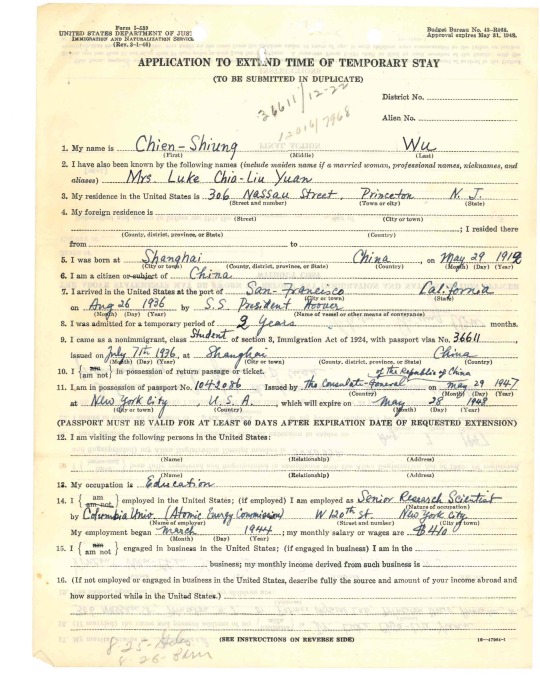 Form I-539
UNITED STATES DEPARTMENT OF JUST
IMMIGRATION AND NATURALIZATION SERVICE
(Rev. 3-1-46)
Budget Bureau No. 43-R068.
Approval expires May 31, 1948.
APPLICATION TO EXTEND TIME OF TEMPORARY STAY
(TO BE SUBMITTED IN DUPLICATE)
36611/12-22
12016/7968
District No.
Alien No.
1. My name is Chien-Shiung Wu
(First) (Middle) (Last)
2. I have also been known by the following names (include maiden name if a married woman, professional names, nicknames, and
aliases) Mrs. Luke Chia-Liu Yuan
3. My residence in the United States is 306 Nassau Street, Princeton N. J.
(Street and number) (Town or city) (State)
4. My foreign residence is
(Street) (City or town)
; I resided there
(County, district, province, or State) (Country)
from to
5. I was born at Shanghai China, on May 29 1912
(City or town) (County, district, province, or State) (Country) (Month) (Day) (Year)
6. I am a citizen or subject of China
7. I arrived in the United States at the port of San-Francisco California
(City or town) (State)
on Aug 26 1936 by S.S. President Hoover
(Month) (Day) (Year) (Name of vessel or other means of conveyance)
8. I was admitted for a temporary period of 2 Years months.
9. I came as a nonimmigrant, class Student of section 3, Immigration Act of 1924, with passport visa No. 36611
issued on July 7th 1936, at Shanghai China
(Month) (Day) (Year) (City or town) (County, district, province, or State) (Country)
10. I { am am not } in possession of return passage or ticket. of the Republic of China
11. I am in possession of passport No. 1042086 Issued by the Consulate-General on may 29 1947
(Month) (Day) (Year)
at New York City U.S.A., which will expire on May 28 1948
(City or town) (Country) (Month) (Day) (Year)
(PASSPORT MUST BE VALID FOR AT LEAST 60 DAYS AFTER EXPIRATION DATE OF REQUESTED EXTENSION)
12. I am visiting the following persons in the United States:
(Name) (Relationship) (Address)
(Name) (Relationship) (Address)
13. My occupation is Education
14. I { am am not } employed in the United States; (if employed) I am employed as Senior Research Scientist
(Nature of occupation)
by Columbia Univ. (Atomic Energy Commission) W 120th St. New York City
(Name of employer) (Street and number) (City or town)
My employment began March 1944; my monthly salary or wages are $410
(Month) (Day) (Year)
15. I { am am not } engaged in business in the United States; (if engaged in business) I am in the
business; my monthly income derived from such business is
16. (If not employed or engaged in business in the United States, describe fully the source and amount of your income abroad and
how supported while in the United States.)
(SEE INSTRUCTIONS ON REVERSE SIDE)
16-47964-1